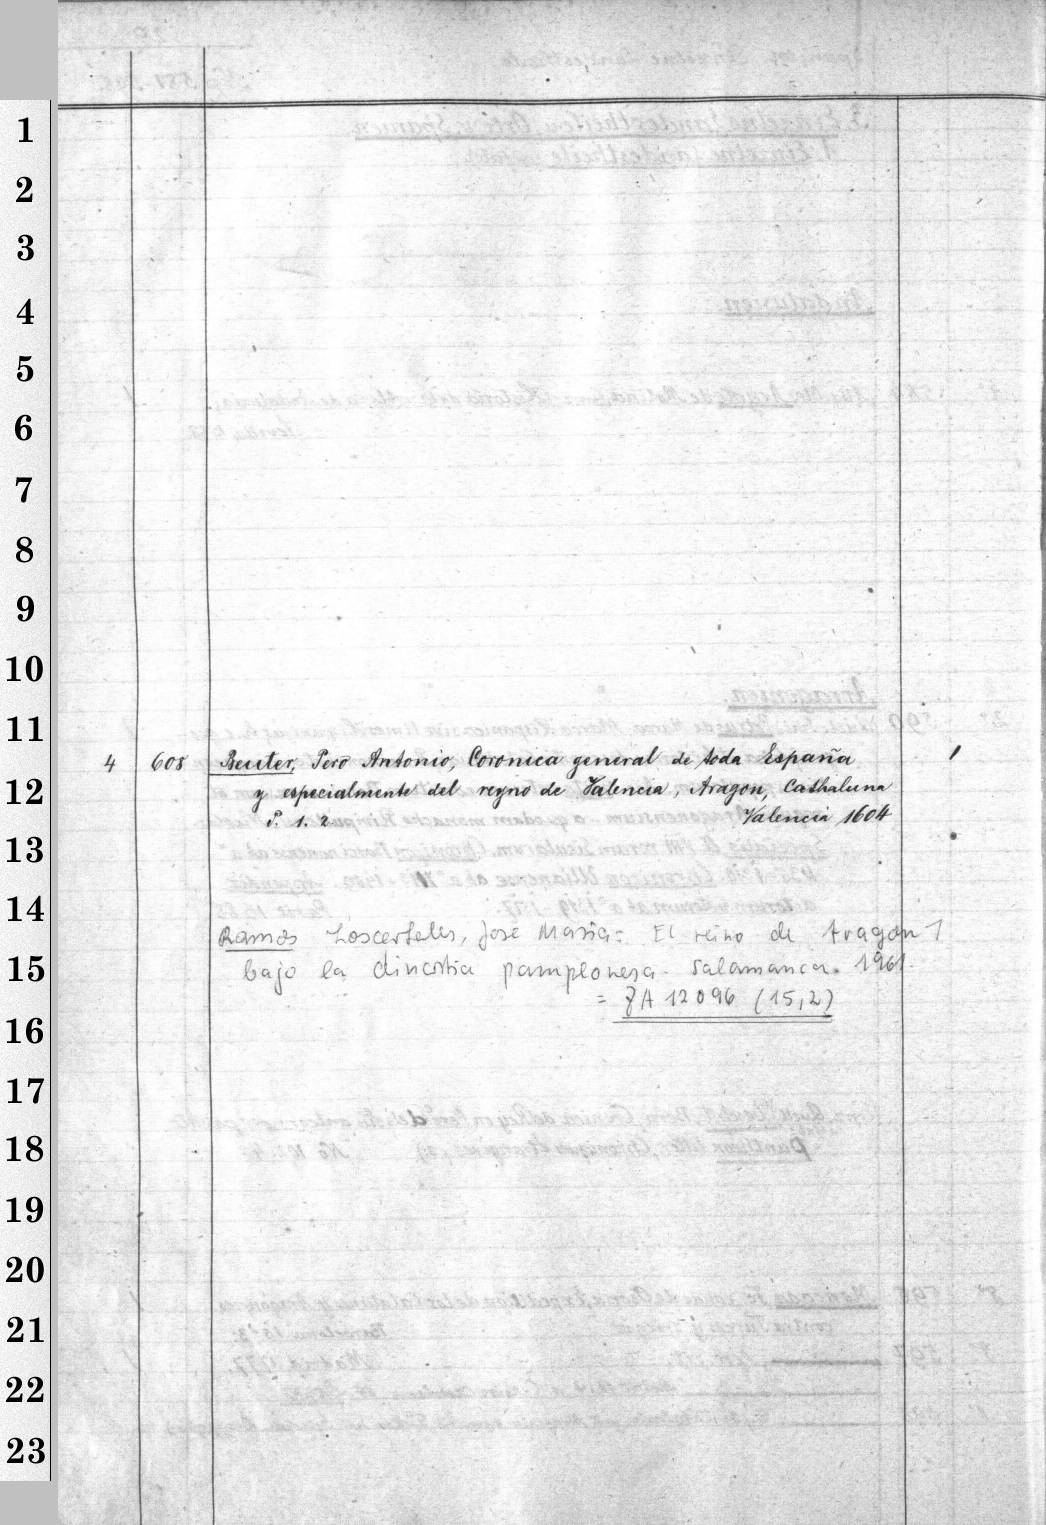 1
2
3
4
5
6
7
8
9
10
11
4 608 Beuter, Pero Antonio, Coronica general de toda España 1
12
y especialmente del reyno de Valencia, Aragon, Cathaluna
P. 1. 2 Valencia 1604
13
14
Ramos Loscertales, José Maria: El reino de Aragon 1
15
bajo la dinastia pamplonesa. Salamanca. 1961.
= ZA 12096 (15,2)
16
17
18
19
20
21
22
23